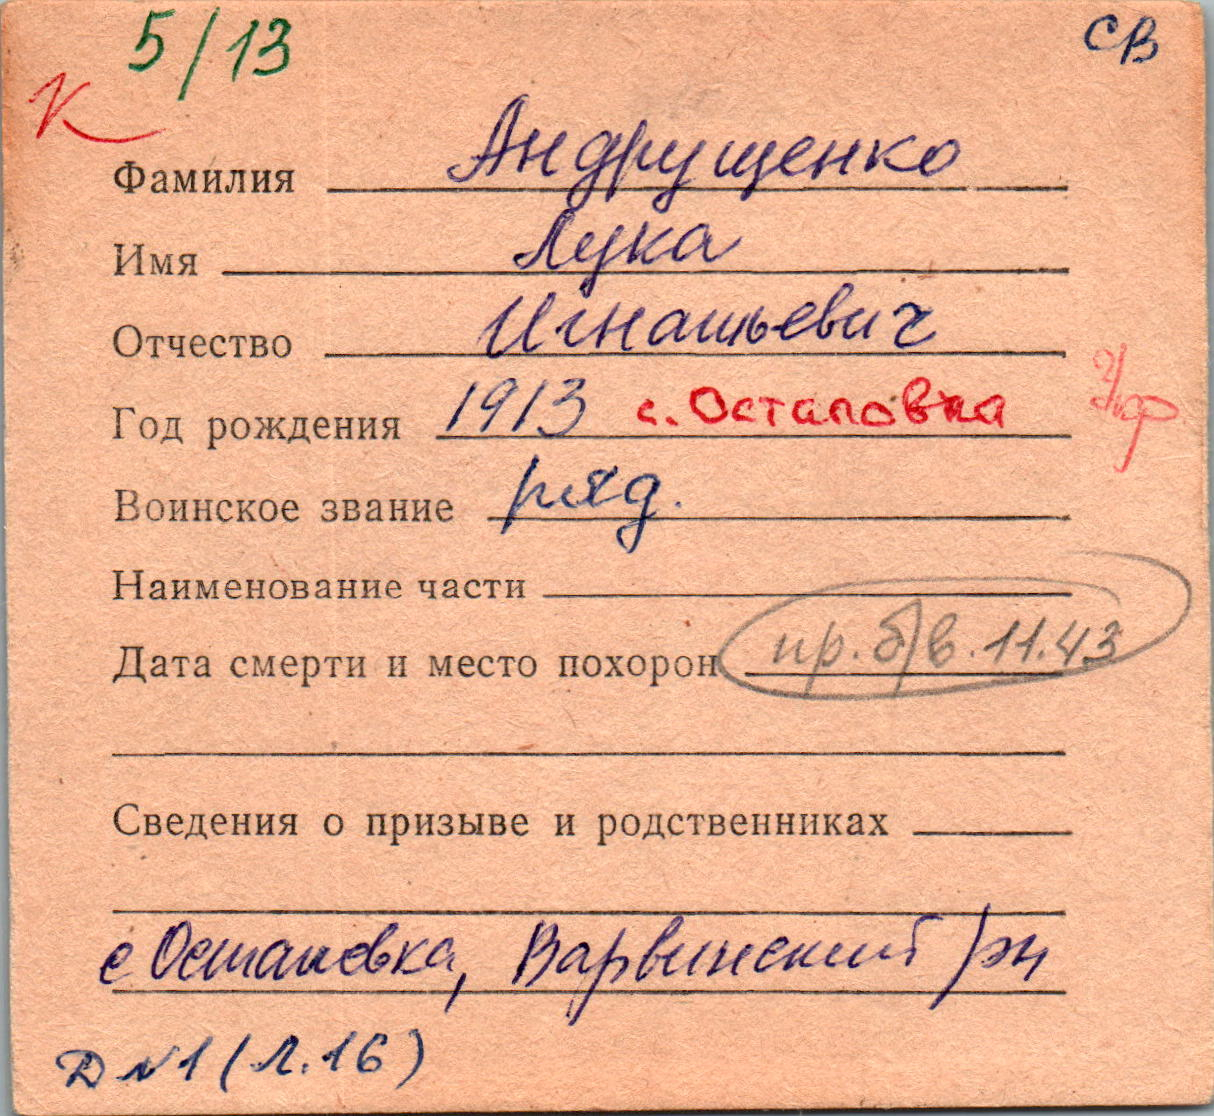 5/13
СВ
К
Фамилия Андрущенко
Имя Лука
Отчество Игнатьевич
Год рождения 1913 с. Остаповка
Воинское звание ряд.
Наименование части
Дата смерти и место похорон пр. б/в. 11.43
Сведения о призыве и родственниках
с Остаповка, Варвинский р-н
Д №1 (л.16)